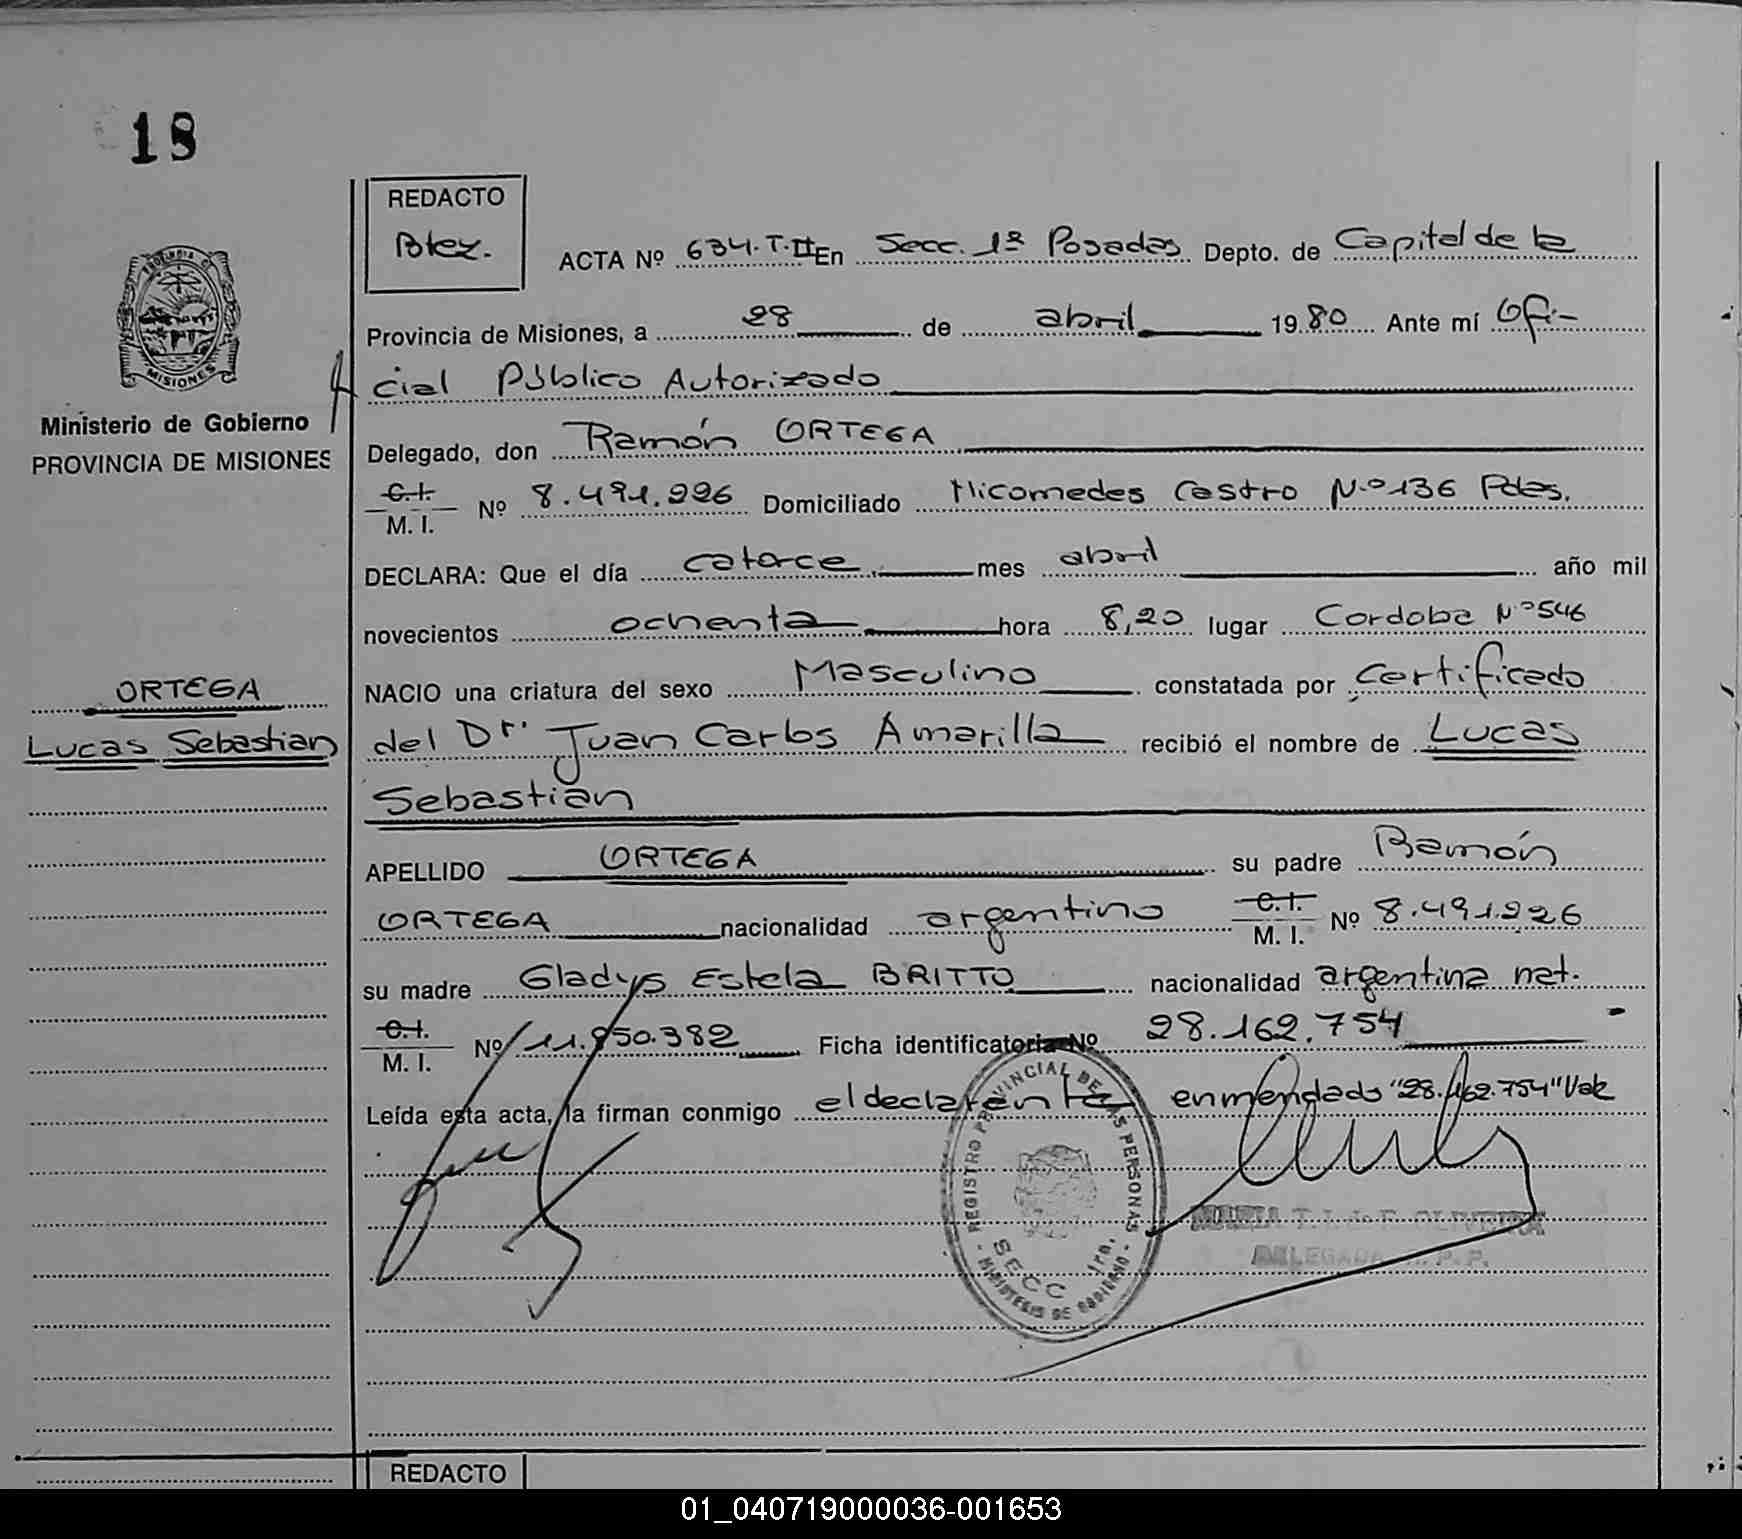 18
REDACTO
Btez.
ACTA Nº 634. T. II En Secc. 1ª Posadas Depto. de Capital de la
Provincia de Misiones, a 28 de abril 1980 Ante mí Ofi-
cial Público Autorizado
Delegado, don Ramón ORTEGA
C.I.
M. I. Nº 8.491.226 Domiciliado Nicomedes Castro N.º 136 Pdas.
DECLARA: Que el día catorce mes abril año mil
novecientos ochenta hora 8,20 lugar Cordoba Nº 546
NACIO una criatura del sexo Masculino constatada por Certificado
del Dr. Juan Carlos Amarilla recibió el nombre de Lucas
Sebastián
APELLIDO ORTEGA su padre Ramón
ORTEGA nacionalidad argentino C.I.
M. I. Nº 8.491.226
su madre Gladys Estela BRITTO nacionalidad argentina nat.
C.I.
M. I. Nº 11.950.382 Ficha identificatoria Nº 28.162.754
Leída esta acta, la firman conmigo el declarante enmendado "28.162.754" Vale
PROVINCIA DE
MISIONES
Ministerio de Gobierno
PROVINCIA DE MISIONES
ORTEGA
Lucas Sebastian
REGISTRO PROVINCIAL DE LAS PERSONAS
SECC 1ra.
- MINISTERIO DE GOBIERNO -
MARIA T. I. de F. OLIVEIRA
DELEGADA R. P. P.
REDACTO
01_040719000036-001653